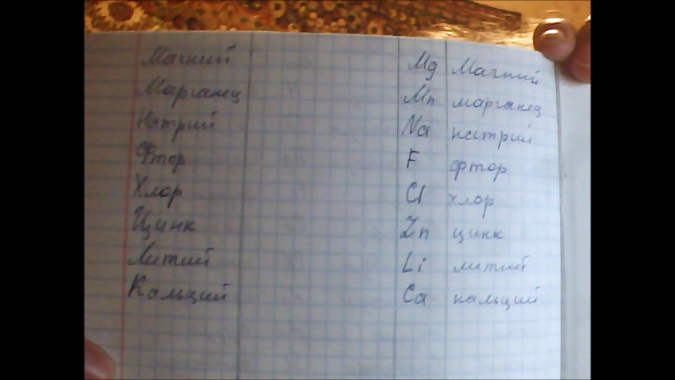 Магний Mg Магний
Марганец Mn марганец
Натрий Na натрий
Фтор F фтор
Хлор Cl хлор
Цинк Zn цинк
Литий Li литий
Кальций Ca кальций